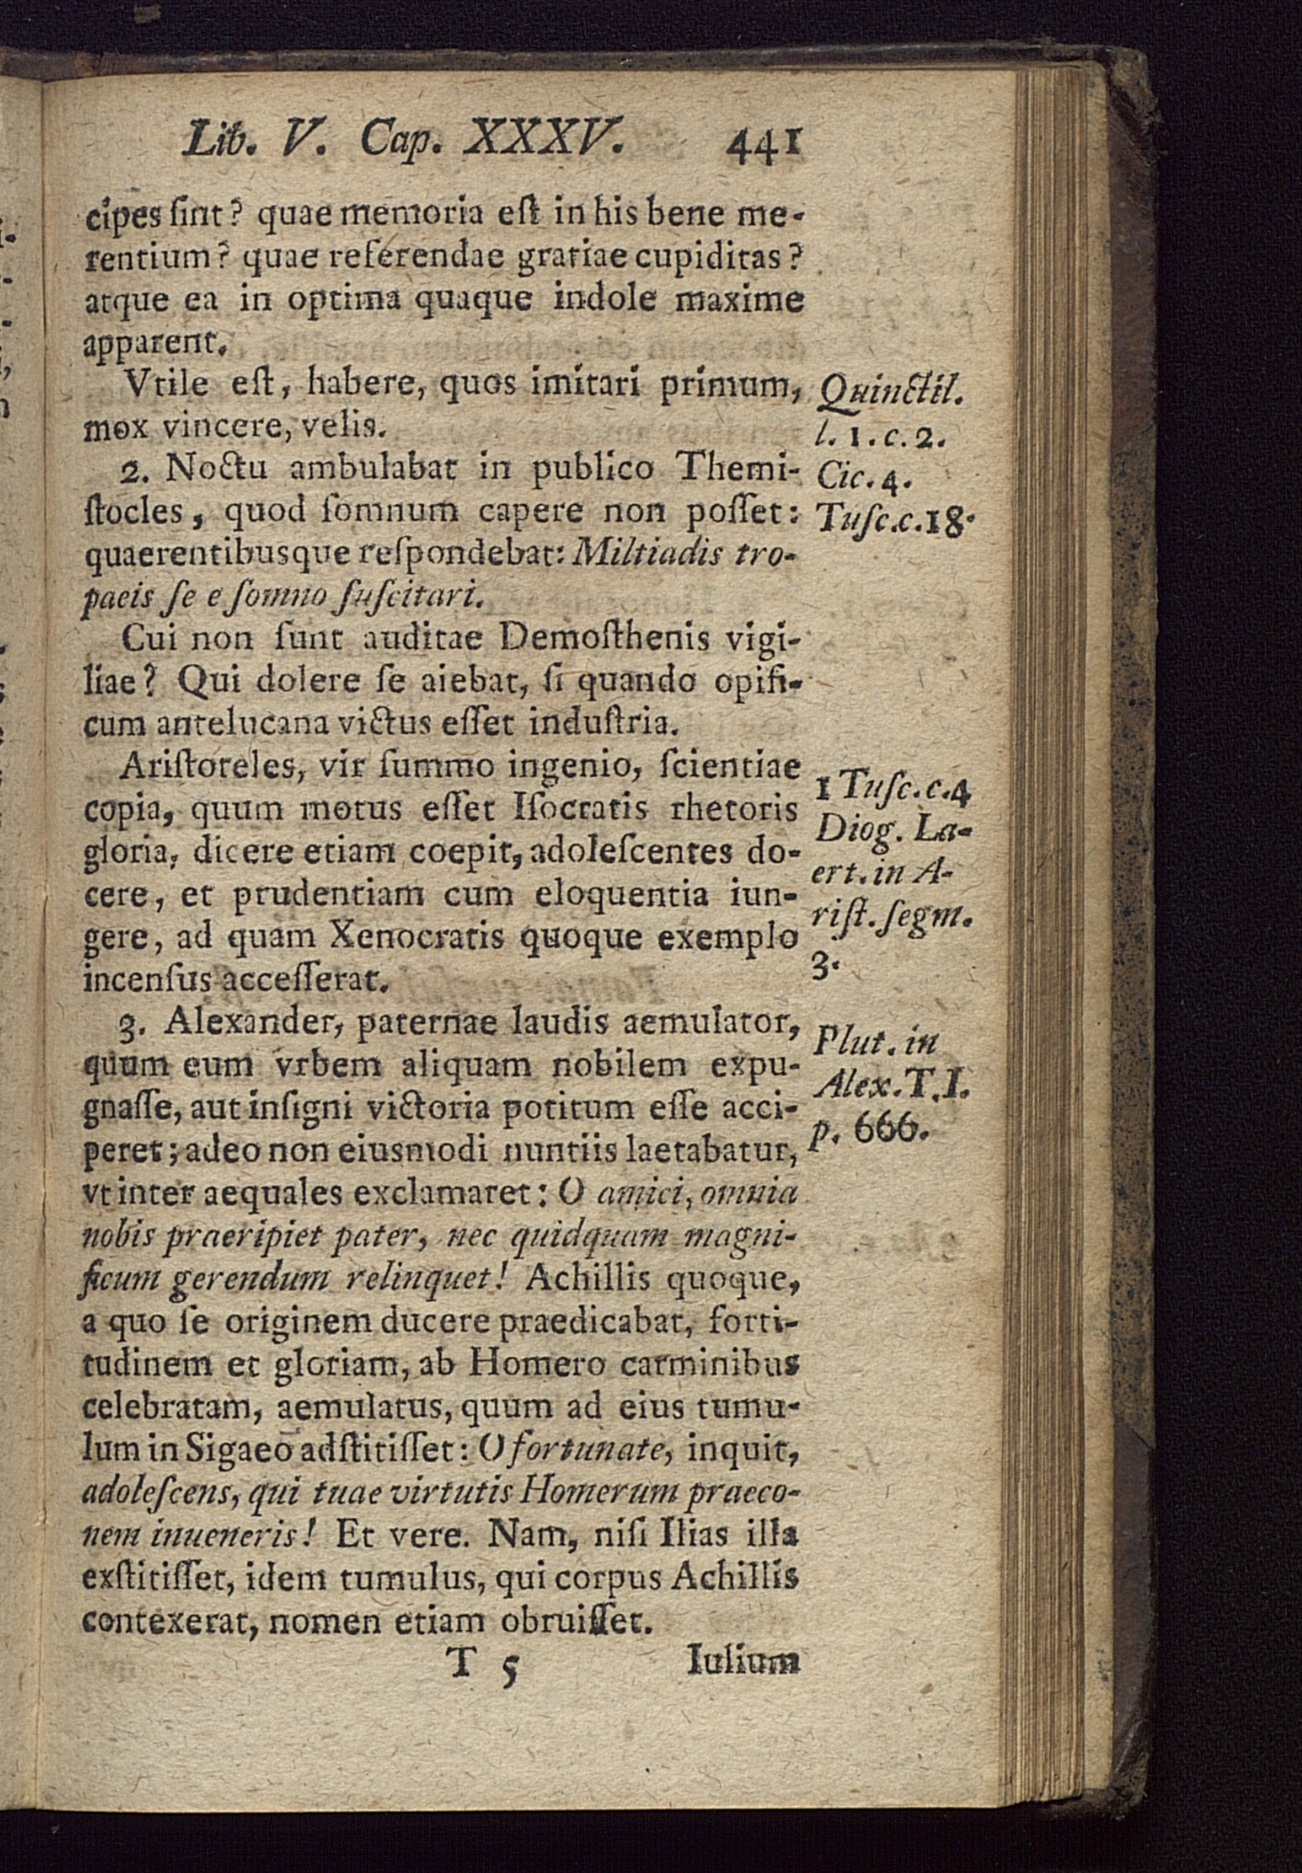 Lib. V. Cap. XXXV. 441
cipes ſint? quae memoria eſt in his bene me-
rentium? quae referendae gratiae cupiditas?
atque ea in optima quaque indole maxime
apparent.
Vtile eſt, habere, quos imitari primum,
mox vincere, velis.
Quinctil.
l. 1. c. 2.
2. Noctu ambulabat in publico Themi-
ſtocles, quod ſomnum capere non poſſet:
quaerentibusque reſpondebat: Miltiadis tro-
paeis ſe e ſomno ſuſcitari.
Cic. 4.
Tuſc. c. 18.
Cui non ſunt auditae Demoſthenis vigi-
liae? Qui dolere ſe aiebat, ſi quando opifi-
cum antelucana victus eſſet induſtria.
Ariſtoteles, vir ſummo ingenio, ſcientiae
copia, quum motus eſſet Iſocratis rhetoris
gloria, dicere etiam coepit, adoleſcentes do-
cere, et prudentiam cum eloquentia iun-
gere, ad quam Xenocratis quoque exemplo
incenſus acceſſerat.
1 Tuſc. c. 4
Diog. La-
ert. in A-
riſt. ſegm.
3.
3. Alexander, paternae laudis aemulator,
quum eum vrbem aliquam nobilem expu-
gnaſſe, aut inſigni victoria potitum eſſe acci-
peret; adeo non eiusmodi nuntiis laetabatur,
vt inter aequales exclamaret: O amici, omnia
nobis praeripiet pater, nec quidquam magni-
ficum gerendum relinquet! Achillis quoque,
a quo ſe originem ducere praedicabat, forti-
tudinem et gloriam, ab Homero carminibus
celebratam, aemulatus, quum ad eius tumu-
lum in Sigaeo adſtitiſſet: O fortunate, inquit,
adoleſcens, qui tuae virtutis Homerum praeco-
nem inueneris! Et vere. Nam, niſi Ilias illa
exſtitiſſet, idem tumulus, qui corpus Achillis
contexerat, nomen etiam obruiſſet.
Plut. in
Alex. T. I.
p. 666.
T 5 Iulium